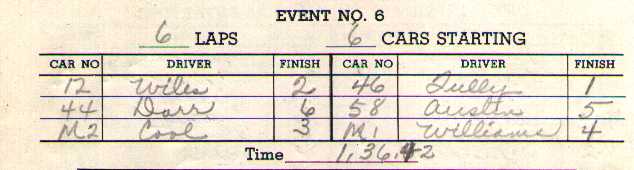 EVENT NO. 6
6 LAPS 6 CARS STARTING
CAR NO DRIVER FINISH CAR NO DRIVER FINISH
12 Wiles 2 46 Tully 1
44 Darr 6 58 Austin 5
M2 Cool 3 M1 Williams 4
Time 1,36.42